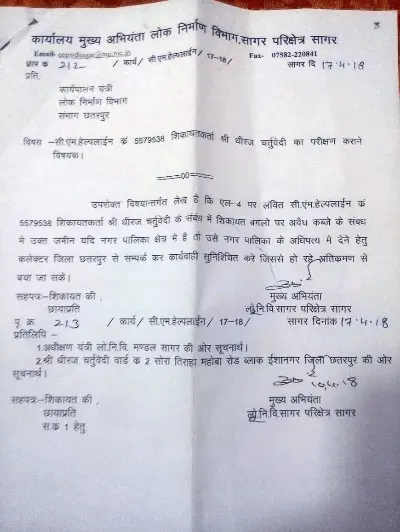 कार्यालय मुख्य अभियंता लोक निर्माण विभाग,सागर परिक्षेत्र सागर
Email- cepwdsagar@mp.nic.in Fax- 07582-220841
क्र 212 / कार्य/ सी.एम.हेल्पलाईन/ 17-18/ सागर दि 17.4.18
प्रति,
कार्यपालन यंत्री
लोक निर्माण विभाग
संभाग छतरपुर
विषय –सी.एम.हेल्पलाईन कं 5579538 शिकायतकर्ता श्री धीरज चर्तुवेदी का परीक्षण कराने
विषयक।
=====00=====
उपरोक्त विषयान्तर्गत लेख है कि एल-4 पर लंवित सी.एम.हेल्पलाईन कं
5579538 शिकायतकर्ता श्री धीरज चर्तुवेदी के संबध मे शिकायत बंगलो पर अवैध कब्जे के संबध
मे उक्त जमीन यदि नगर पालिका क्षेत्र में है तो उसे नगर पालिका के अधिपत्य मे देने हेतु
कलेक्टर जिला छतरपुर से सम्पर्क कर कार्यवाही सुनिश्चित करे जिससे हो रहे अतिकमण से
बचा जा सके।
सहपत्रः–शिकायत की , मुख्य अभियंता
छायाप्रति लो.नि.वि.सागर परिक्षेत्र सागर
पृ. क्र. 213 / कार्य / सी.एम.हेल्पलाईन/ 17-18/ सागर दिनांक 17.4.18
प्रतिलिपि –
1.अधीक्षण यंत्री लो.नि.वि. मण्डल सागर की ओर सूचनार्थ।
2.श्री धीरज चर्तुवेदी वार्ड क 2 सोरा तिराहा महोबा रोड ब्लाक ईशानगर जिला छतरपुर की ओर
सूचनार्थ।
16.4.18
सहपत्रः–शिकायत की , मुख्य अभियंता
छायाप्रति लो.नि.वि.सागर परिक्षेत्र सागर
स.क 1 हेतु